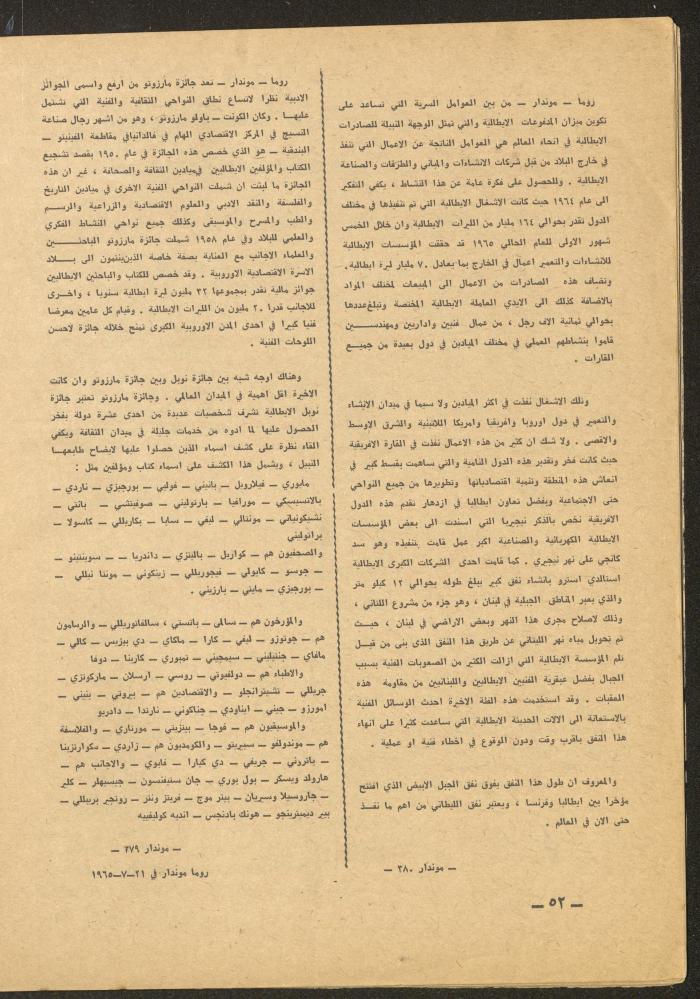 روما — موندار — من بين العوامل السرية التي تساعد على
تكوين ميزان المدفوعات الايطالية والتي تمثل الوجهة النبيلة للصادرات
الايطالية في انحاء العالم هي العوامل الناتجة عن الاعمال التي تنفذ
في خارج البلاد من قبل شركات الانشاءات والمباني والطرقات والصناعة
الايطالية . وللحصول على فكرة عامة عن هذا النشاط ، يكفي التفكير
الى عام ١٩٦٤ حيث كانت الاشغال الايطالية التي تم تنفيذها في مختلف
الدول تقدر بحوالي ١٦٤ مليار من الليرات الايطالية وان خلال الخمس
شهور الاولى للعام الحالي ١٩٦٥ قد حققت المؤسسات الايطالية
للانشاءات والتعمير اعمال في الخارج بما يعادل ٧٠ مليار ليرة ايطالية.
وتضاف هذه الصادرات من الاعمال الى المبيعات لمختلف المواد
بالاضافة كذلك الى الايدي العاملة الايطالية المختصة وتبلغ عددها
بحوالي ثمانية الاف رجل ، من عمال فنيين واداريين ومهندســـين
قاموا بنشاطهم العملي في مختلف الميادين في دول بعيدة من جميـــع
القارات .
وتلك الاشغال نفذت في اكثر الميادين ولا سيما في ميدان الانشاء
والتعمير في دول اوروبا وافريقيا وامريكا اللاتينية والشرق الاوسط
والاقصى . ولا شك ان كثير من هذه الاعمال نفذت في القارة الافريقية
حيث كانت فخر وتقدير هذه الدول النامية والتي ساهمت بقسط كبير في
انعاش هذه المنطقة وتنمية اقتصادياتها وتطويرها من جميع النواحي
حتى الاجتماعية وبفضل تعاون ايطاليا في ازدهار تقدم هذه الدول
الافريقية نخص بالذكر نيجيريا التي اسندت الى بعض المؤسسات
الايطالية الكهربائية والصناعية اكبر عمل قامت بتنفيذه وهو سد
كانجي على نهر نيجري . كما قامت احدى الشركات الكبرى الايطالية
استالدي استرو بانشاء نفق كبير يبلغ طوله بحوالي ١٢ كيلو متر
والذي يعبر المناطق الجبلية في لبنان ، وهو جزء من مشروع اللتاني ،
وذلك لاصلاح مجرى هذا النهر وبعض الاراضي في لبنان ، حيـــث
تم تحويل مياه نهر الليتاني عن طريق هذا النفق الذي بنى من قبـــل
تلم المؤسسة الايطالية التي ازالت الكثير من الصعوبات الفنية بسبب
الجبال بفضل عبقرية الفنيين الايطاليين واللبنانيين من مقاومة هذه
العقبات . وقد استخدمت هذه الفئة الاخيرة احدث الوسائل الفنية
بالاستعانة الى الالات الحديثة الايطالية التي ساعدت كثيرا على انهاء
هذا النفق باقرب وقت ودون الوقوع في اخطاء فنية او عملية .
والمعروف ان طول هذا النفق يفوق نفق الجبل الابيض الذي افتتح
مؤخرا بين ايطاليا وفرنسا ، ويعتبر نفق الليطاني من اهم ما نفـــذ
حتى الان في العالم .
— موندار ٣٨٠ —
روما — موندار — تعد جائزة مارزوتو من ارفع واسمى الجوائز
الادبية نظرا لاتساع نطاق النواحي الثقافية والفنية التي تشتمل
عليهـــا . وكان الكونت — باولو مارزوتو ، وهو من اشهر رجال صناعة
النسيج في المركز الاقتصادي الهام في فالدانياني مقاطعة الفينيتو —
البندقية — هو الذي خصص هذه الجائزة في عام ١٩٥٠ بقصد تشجيع
الكتاب والمؤلفين الايطاليين في ميادين الثقافة والصحافة ، غير ان هذه
الجائزة ما لبثت ان شملت النواحي الفنية الاخرى في ميادين التاريخ
والفلسفة والنقد الادبي والعلوم الاقتصادية والزراعية والرســـم
والطب والمسرح والموسيقى وكذلك جميع نواحي النشاط الفكري
والعلمي للبلاد وفي عام ١٩٥٨ شملت جائزة مارزوتو الباحثـــين
والعلماء الاجانب مع العناية بصفة خاصة الذين ينتمون الى بـــلاد
الاسرة الاقتصادية الاوروبية . وقد خصص للكتاب والباحثين الايطاليين
جوائز مالية تقدر بمجموعها ٣٢ مليون ليرة ايطالية سنويا ، واخـــرى
للاجانب قدرا ٢٠ مليون من الليرات الايطالية . وقيام كل عامين معرضا
فنيا كبيرا في احدى المدن الاوروبية الكبرى تمنح خلاله جائزة لاحسن
اللوحات الفنية .
وهناك اوجه شبه بين جائزة نوبل وبين جائزة مارزوتو وان كانت
الاخيرة اقل اهمية في الميدان العالمي . وجائزة مارزوتو تعتبر جائزة
نوبل الايطالية تشرف شخصيات عديدة من احدى عشرة دولة بفخر
الحصول عليها لما ادوه من خدمات جليلة في ميدان الثقافة ويكفي
القاء نظرة على كشف اسماء الذين حصلوا عليها لايضاح طابعهـــا
النبيل ، ويشمل هذا الكشف على اسماء كتاب ومؤلفين مثل :
مابوري — فيلارويل — بانيني — فوليي — بورجيزي — ناردي —
بالاتسيسكي — مورافيا — بارتوليني — صوفيتشي — بانتي —
تشيكونياني — مونتالي — ليفي — سابا — بكاريللي — كاسولا —
براتوليني
والصحفيون هم — كوازيل — بالينزي — داندريا — — سوينتينو —
— جوسو — كابولي — فيجوريللي — زينكوني — مونتا نيللي —
— بورجيزي — مايني — بارزيني .
والمؤرخون هم — سالمى — باتستي ، سالفاتوريللي — والرسامون
هم — جوتوزو — ليفي — كارا — ماكاي — دي بيزيس — كالي —
مافاي — جنتيليني — سيمجيني — تمبوري — كارينا — دوفا
والاطباء هم — دولفيوتي — روسي — ارسلان — ماركونزي —
جريللي — تشيترانجلو — والاقتصادين هم — بيروني — بنيني —
امورزو — جيني — ايناودي — جناكوني — نارندا — دادريو
والموسيقيون هم — فوجا — بيتزيني — مورناري — والفلاسفة
هم — موندولفو — سبيريتو — والكوميديون هم — زاردي — سكوارتزينا
— باتروني — جريفي — دي كيارا — فابوي — والاجانب هم —
هارولد ويسكر — بول بوري — جان ستيفنسون — جيسيهلر — كلير
— جاروسيلا وسريان — بيتر موج — فريتز ونتر — روتجير بربيللي —
بيير ديميترينجو — هونك بادنجس — انديه كوليفييه
— موندار ٣٧٩ —
روما موندار في ٢١—٧—١٩٦٥
— ٥٢ —